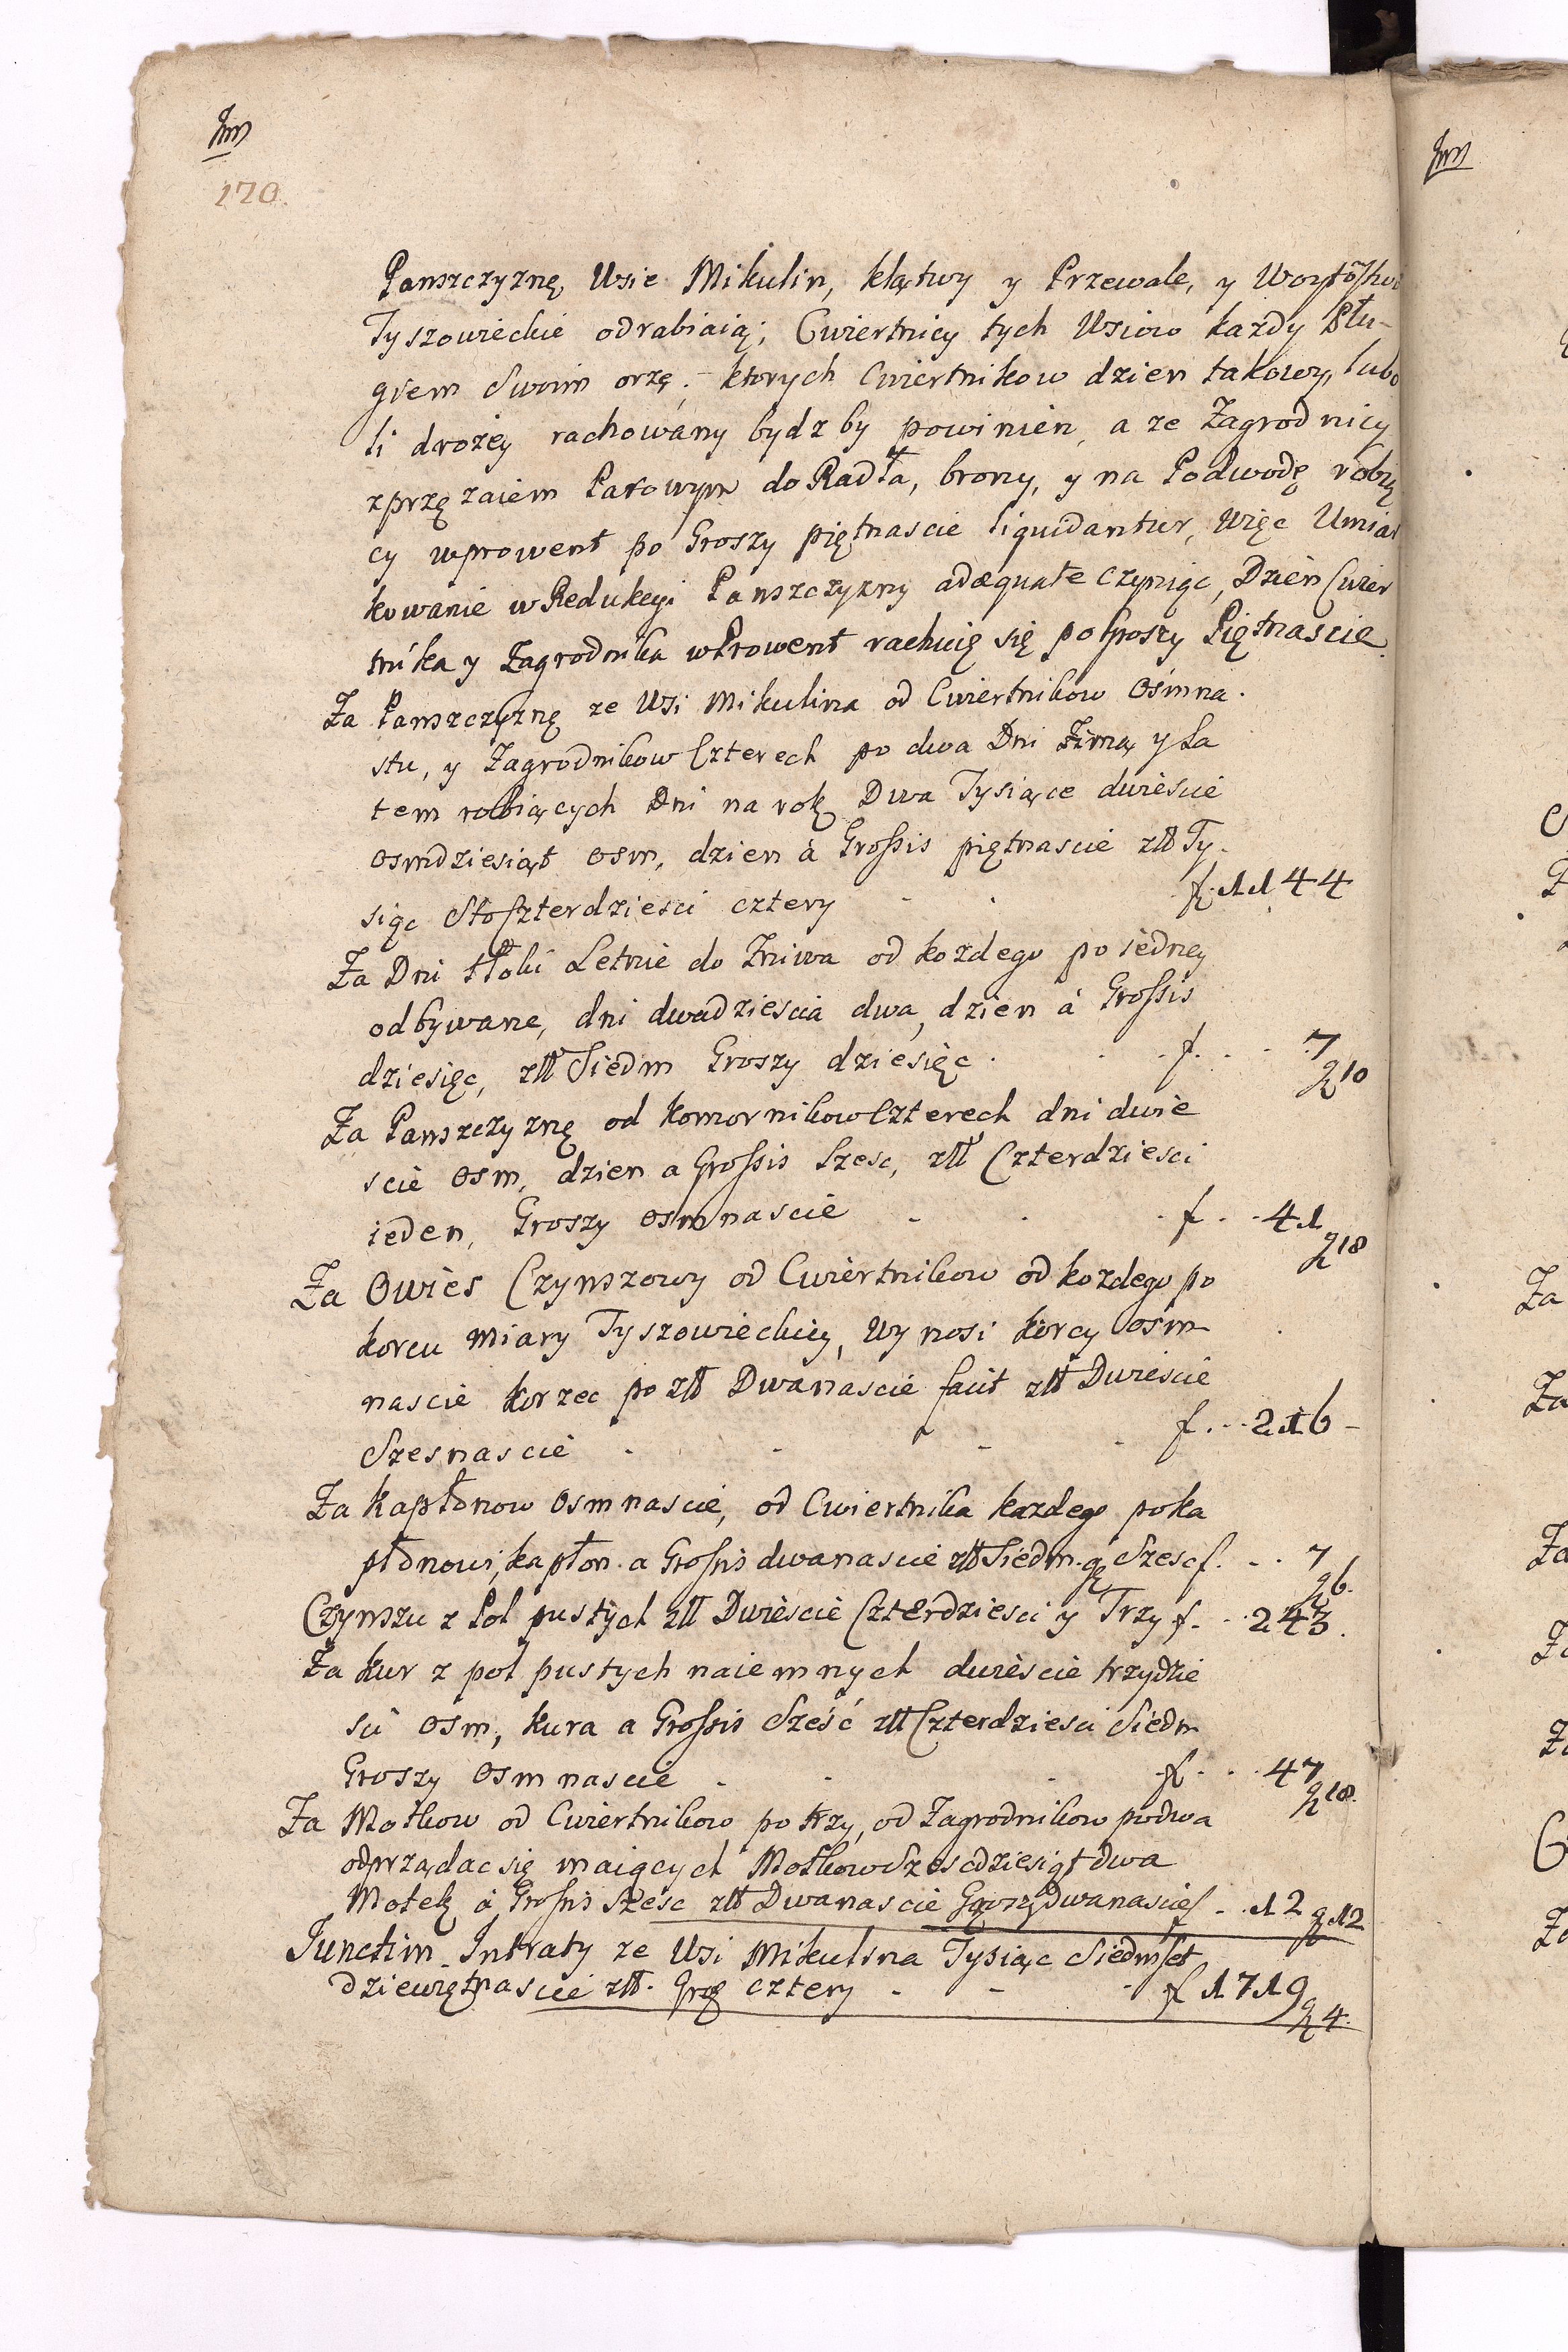 170.
Panszczyznę Wsie Mikulin, klątwy y Przewale, y Woytostwo
Tyszowieckie odrabiaią; Cwiertnicy tych Wsiow każdy Płu-
giem Swoim orzę; ktorych Cwiertnikow dzien takowy, lubo
li drożey rachowany bydz by powinien, a ze Zagrodnicy
zprzęzaiem Parowym do Radła, brony, y na Podwodę robią
cy wprowent po Groszy piętnascie liquidantur, Więc Umiar
kowanie w Redukcyi Panszczyzny adæquate czyniąc, Dzien Cwier
tnika y Zagrodnika w Prowent rachuię się po groszy Piętnascie.
Za Panszczyznę ze Wsi Mikulina od Cwiertnikow Ośmna.
stu, y Zagrodnikow Czterech po dwa Dni Zimą y La
tem robiących Dni na rok Dwa Tysiące dwieście
osmdziesiąt osm, dzien à Grossis piętnascie złł Ty.
siąc Sto Czterdziesci cztery - . f. 1144
Za Dni tłoki Letnie do Zniwa od kozdego po iedney
odbywane, dni dwadziescia dwa, dzien à Grossis
dziesięc, złł Siedm Groszy dziesięc . . . f. . . . 7 g 10
Za Panszczyznę od Komornikow Czterech dni dwie
scie osm, dzien a Grossis Szesc, złł Czterdziesci
ieden, Groszy osmnascie - . . f . . 41 g 18
Za Owies Czynszowy od Cwiertnikow od kozdego po
korcu miary Tyszowieckiey, Wynosi korcy ośm
nascie korzec po złł Dwanascie facit złł Dwieście
Szesnascie . - - . f. . . 216 -
Za Kapłonow Osmnascie, od Cwiertnika kazdego po ka
płonowi, kapłon. a Grossis dwanascie złł Siedm. g Szesc f. . . 7 g 6.
Czynszu z Pol pustych złł Dwieście Czterdziesci y Trzy f. . 243.
Za Kur z pol pustych naiemnych dwieście trzydzie
sci osm, kura a Grossis Sześć złł Czterdziesci Siedm
Groszy Osmnascie . . . f. . . 47 g 18.
Za Motkow od Cwiertnikow po trzy, od Zagrodnikow po dwa
odprządac się maiących Motkow Szescdziesiąt dwa
Motek à Grossis Szesc złł Dwanascie Groszy Dwanascie f . . 12 g 12
Junctim Intraty ze Wsi Mikulina Tysiąc Siedmset
dziewiętnascie złł. Grg cztery . - . f 1719 g 4.